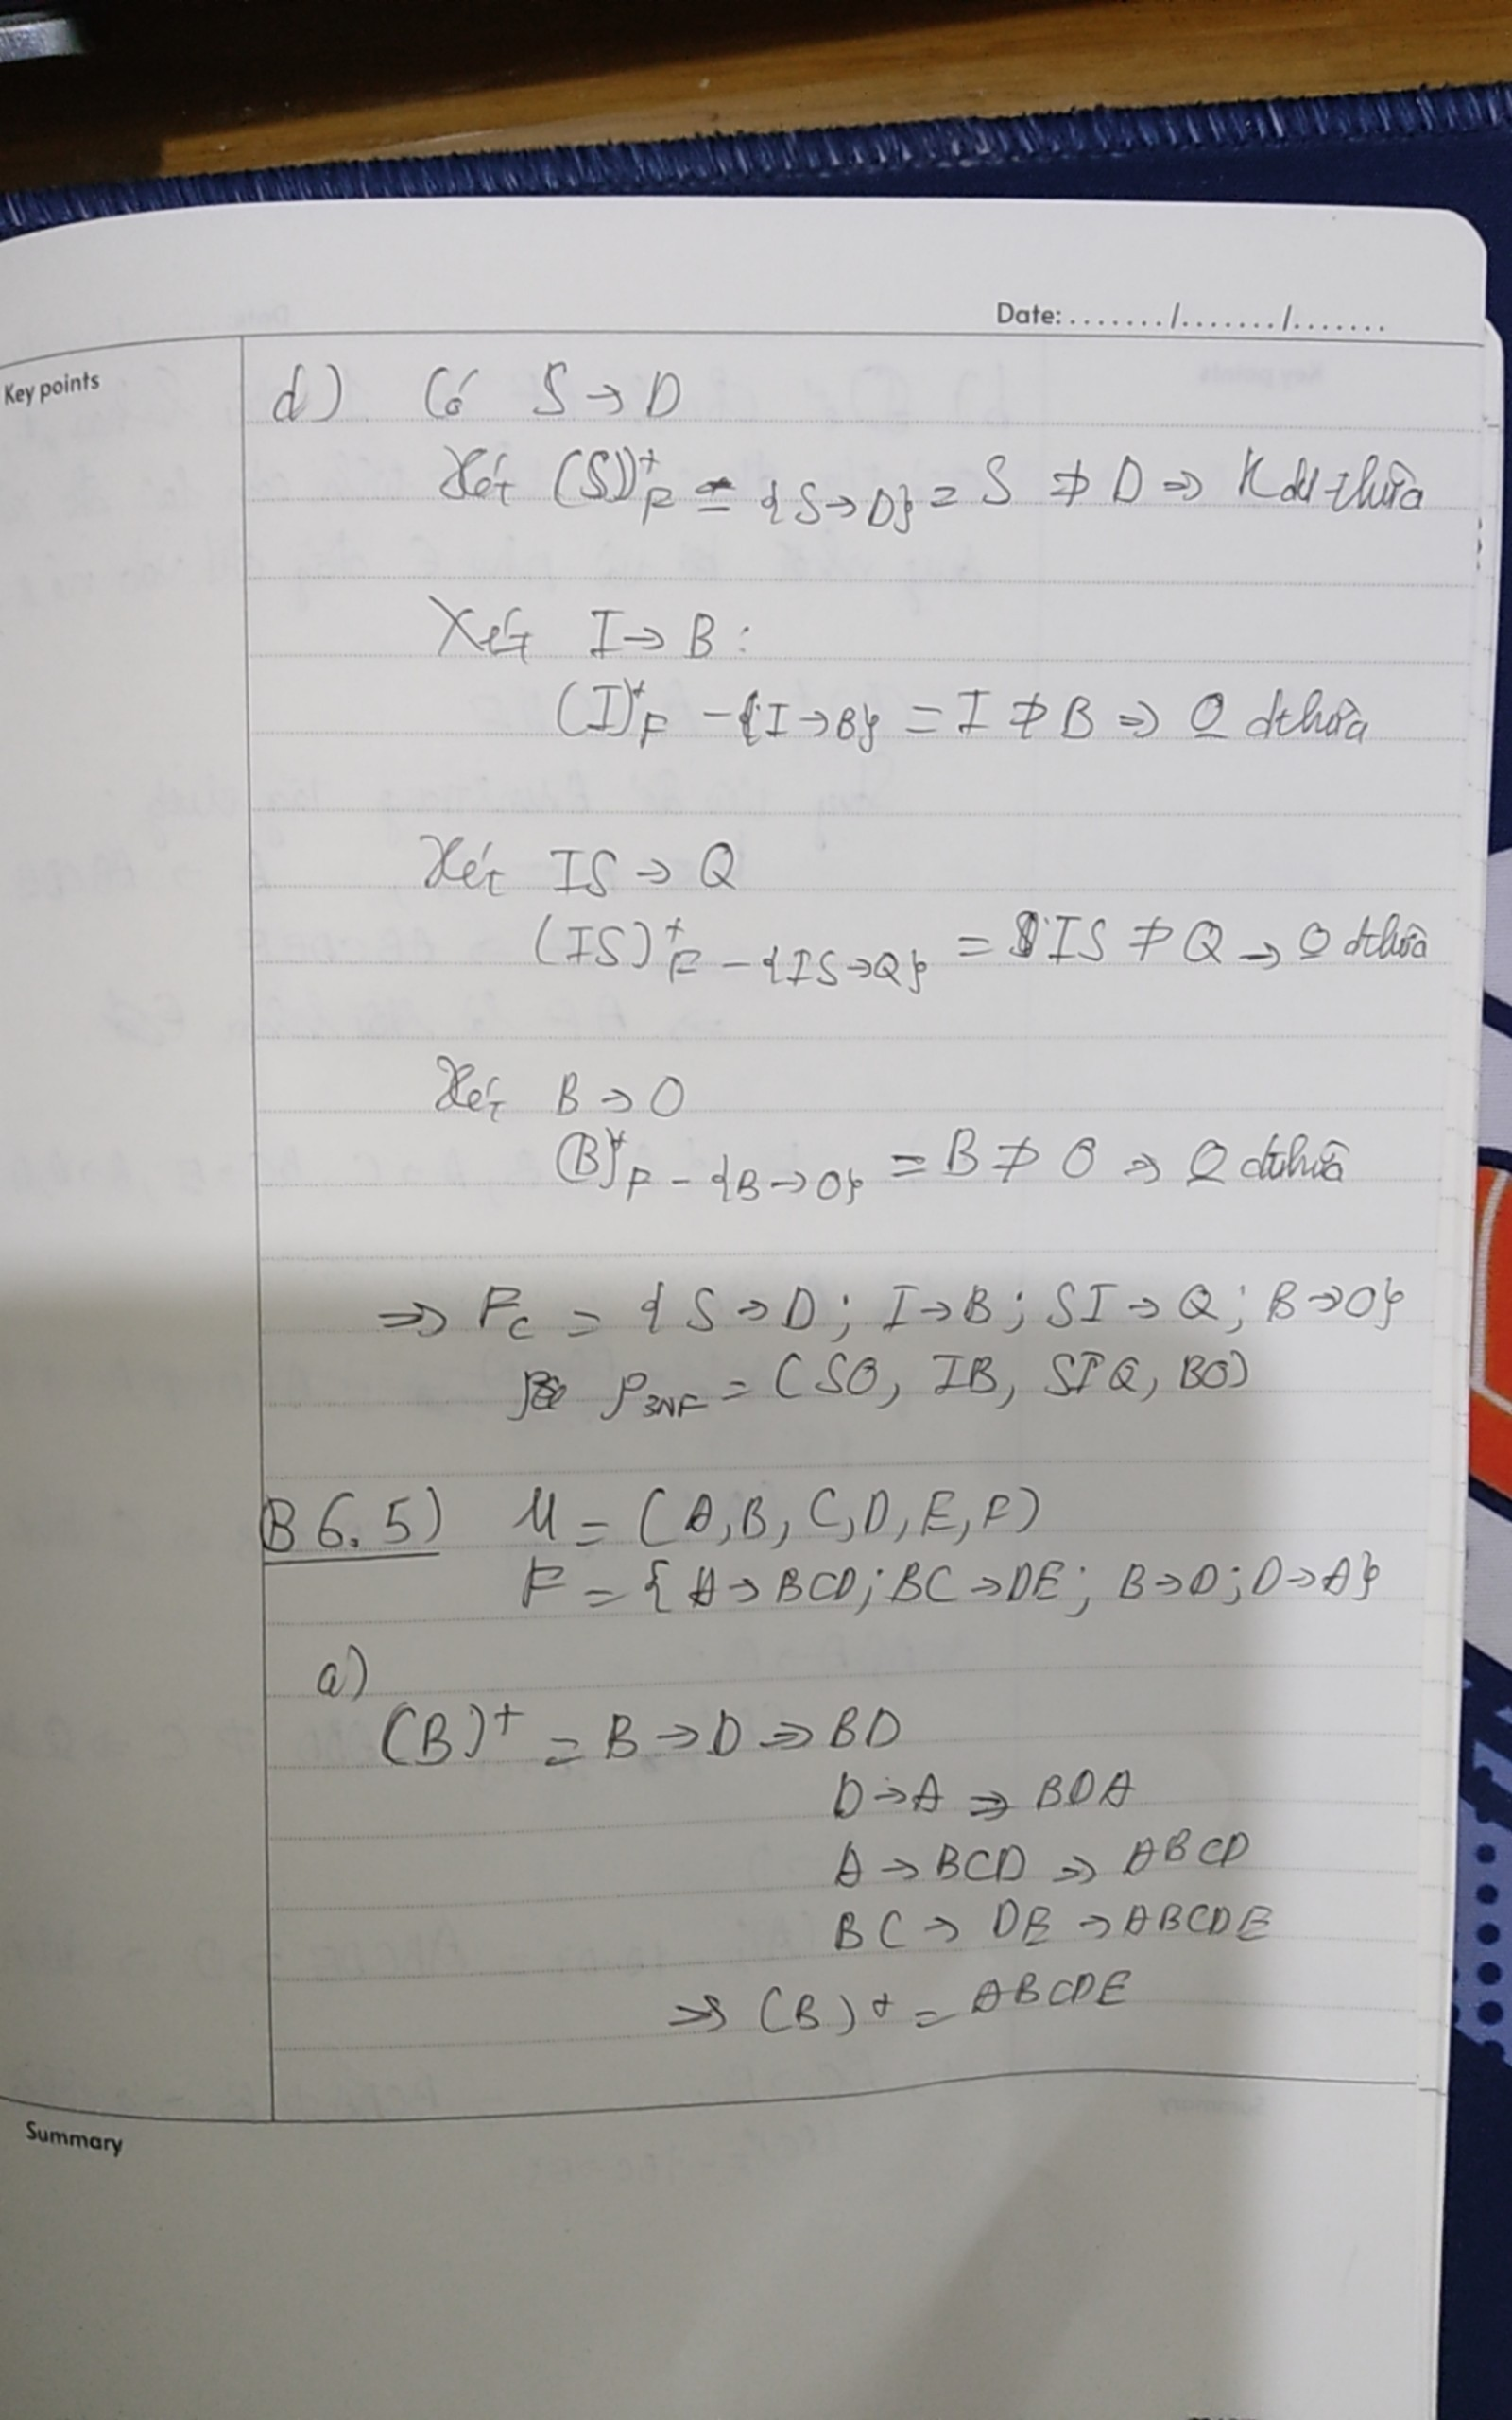 Date: ......./......./.......
Key points
d) Có S → D
Xét (S)⁺F - {S→D} = S ∌ D ⇒ K dư thừa
Xét I → B :
(I)⁺F - {I→B} = I ∌ B ⇒ 0 dthừa
Xét IS → Q
(IS)⁺F - {IS→Q} = IS ∌ Q → 0 dthừa
Xét B → O
(B)⁺F - {B→O} = B ∌ O ⇒ 0 dthừa
⇒ Fc = {S→D; I→B; SI→Q; B→O}
ρ3NF = (SD, IB, SIQ, BO)
B 6.5) U = (A,B,C,D,E,F)
F = {A→BCD; BC→DE; B→D; D→A}
a)
(B)⁺ = B → D ⇒ BD
D→A ⇒ BDA
A → BCD ⇒ ABCD
BC → DE → ABCDE
⇒ (B)⁺ = ABCDE
Summary